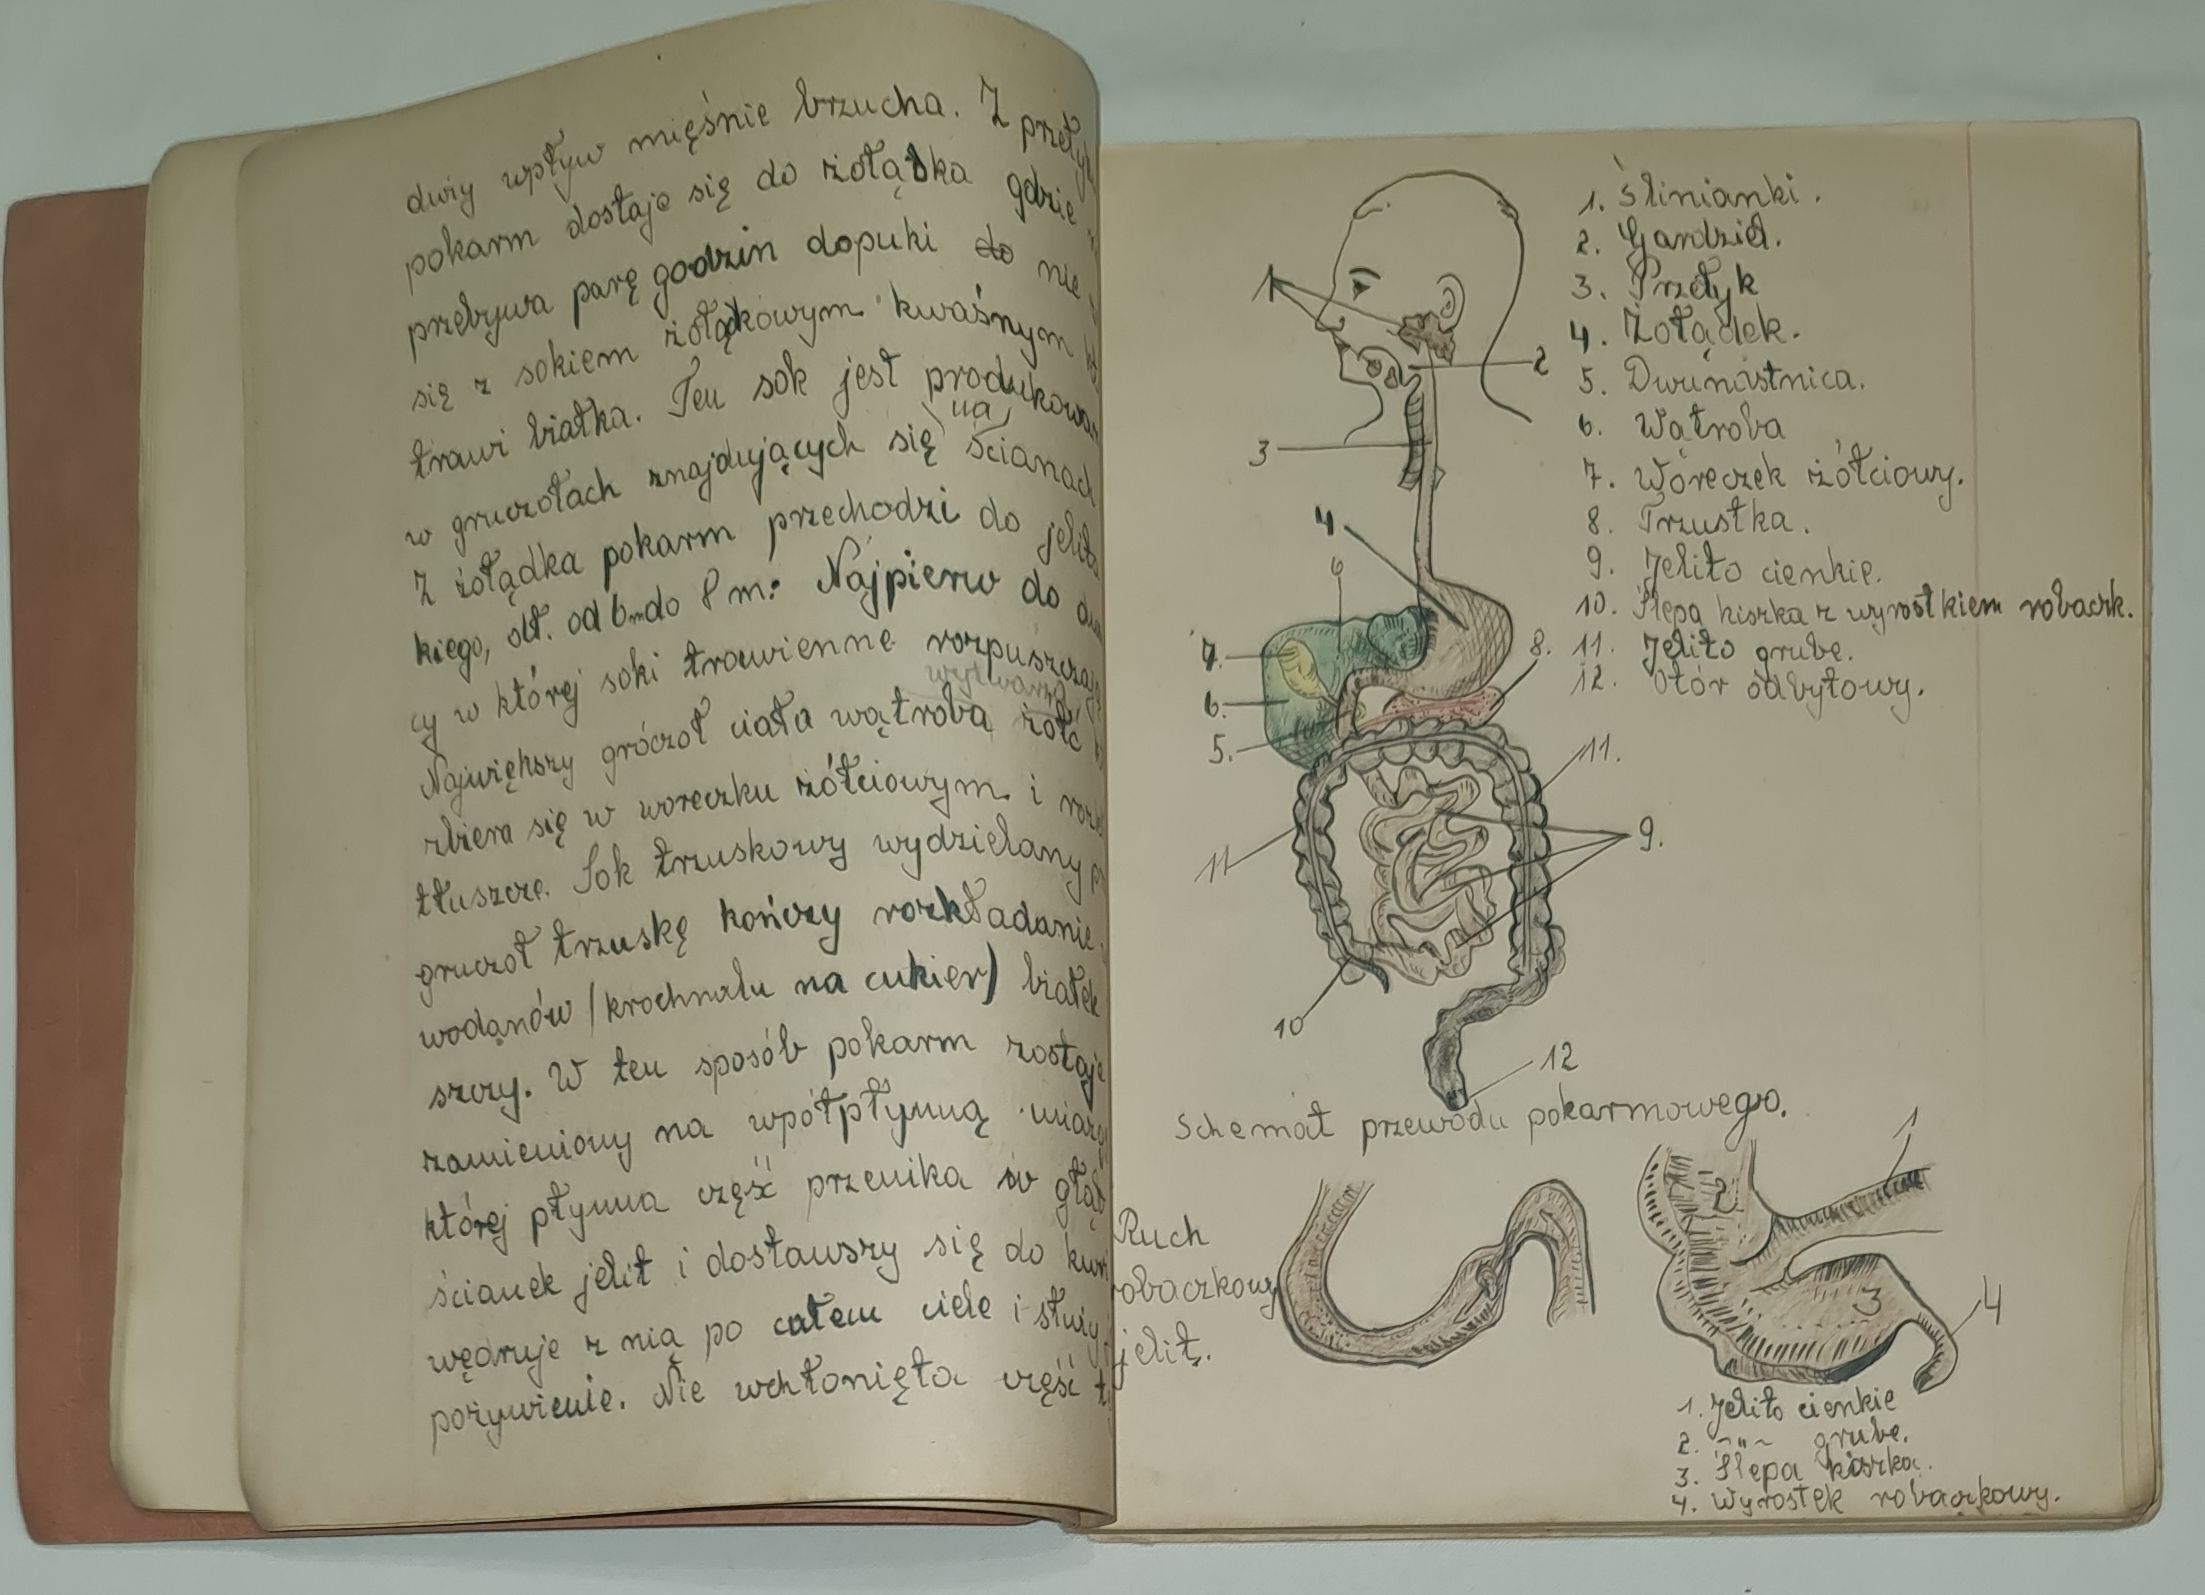 duży wpływ mięśnie brzucha. Z przeły
pokarm dostaje się do żołądka gdzie
przebywa parę godzin dopuki do nie
się z sokiem żołądkowym kwaśnym
trawi białka. Ten sok jest produkowan
na
w gruczołach znajdujących się ścianach
Z żołądka pokarm przechodzi do jelita
kiego, dł. od 6m do 8 m: Najpierw do dwu
cy w której soki trawienne rozpuszczają
wytwarza
Największy gróczoł ciała wątroba żółć
zbiera się w woreczku żółciowym i rozk
tłuszcze. Sok trzuskowy wydzielany p
gruczoł trzuskę kończy rozkładanie
wodanów /krochmalu na cukier) białek
szczy. W ten sposób pokarm zostaje
zamieniony na wpółpłynną miazg
której płynna część przenika w głąb
ścianek jelit i dostawszy się do krwi
wędruje z nią po całem ciele i służy
pożywienie. Nie wchłonięta część t
1. Ślinianki.
2. Gardziel.
3. Przełyk
4. Żołądek.
5. Dwunastnica.
6. Wątroba
7. Woreczek żółciowy.
8. Trzustka.
9. Jelito cienkie.
10. Ślepa kiszka z wyrostkiem robaczk.
11. Jelito grube.
12. Otór odbytowy.
1
2
3
4
6
7.
8.
6.
5.
11.
9.
11
10
12
Schemat przewodu pokarmowego.
Ruch
robaczkowy
jelit.
1
2
3
4
1. Jelito cienkie
2. -"- grube.
3. Ślepa kiszka.
4. Wyrostek robaczkowy.